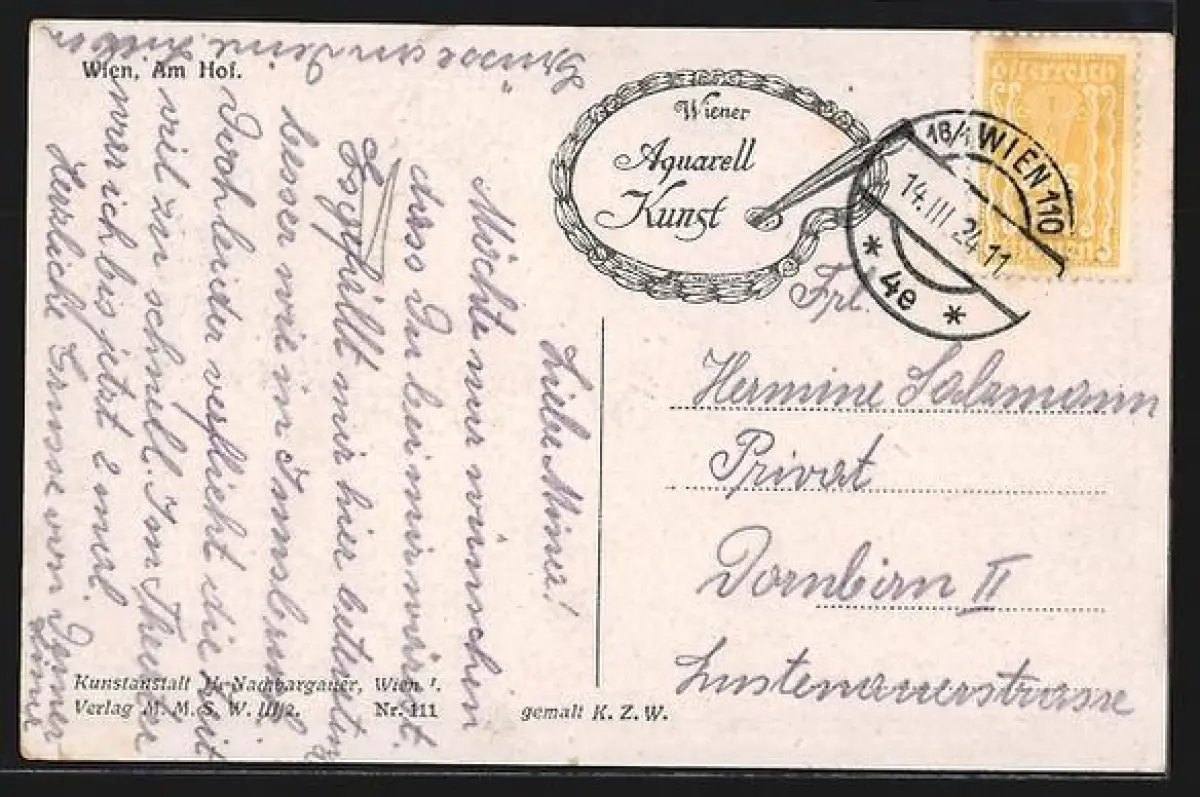 Wien, Am Hof.
Wiener
Aquarell
Kunst
Österreich
Kronen
1B/1 WIEN 110
14.III.24.11
* 4e *
Frl.
Hermine Salzmann
Privat
Dornbirn II
Lustenauerstrasse
Liebe Mina!
Möchte nur wünschen
dass Du bei mir wärst.
Es gefällt mir hier
besser wie in Innsbruck.
Doch leider verflicht die Zeit
viel zu schnell. Im Theater
war ich bis jetzt 2 mal.
Herzliche Grüsse von Deiner
Grüsse an Deine
Kunstanstalt Nachbargauer, Wien I.
Verlag M. M. S. W. III/2. Nr. 111
gemalt K. Z. W.